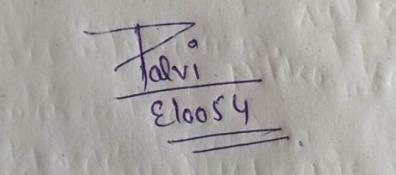 Palvi
E10054